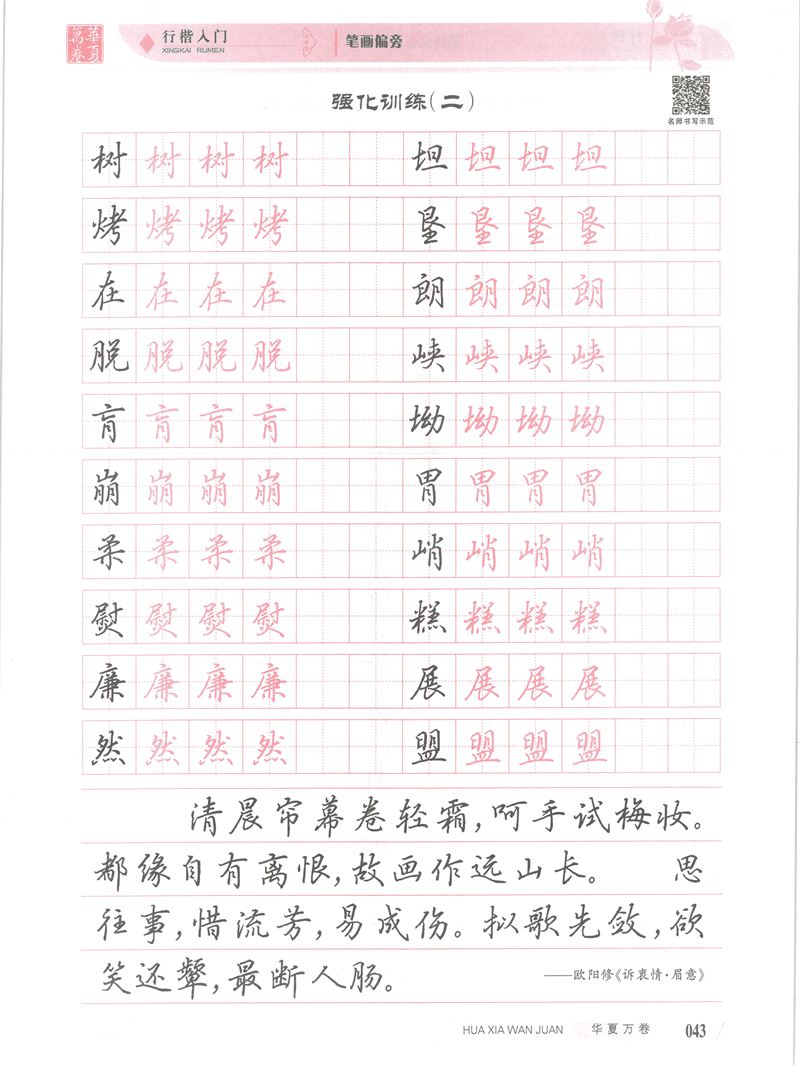 華夏萬卷
行楷入门
XINGKAI RUMEN
笔画偏旁
强化训练(二)
名师书写示范
树 树 树 树 坦 坦 坦 坦
烤 烤 烤 烤 垦 垦 垦 垦
在 在 在 在 朗 朗 朗 朗
脱 脱 脱 脱 峡 峡 峡 峡
肓 肓 肓 肓 坳 坳 坳 坳
崩 崩 崩 崩 胃 胃 胃 胃
柔 柔 柔 柔 峭 峭 峭 峭
熨 熨 熨 熨 糕 糕 糕 糕
廉 廉 廉 廉 展 展 展 展
然 然 然 然 盟 盟 盟 盟
清晨帘幕卷轻霜,呵手试梅妆。
都缘自有离恨,故画作远山长。 思
往事,惜流芳,易成伤。拟歌先敛,欲
笑还颦,最断人肠。
——欧阳修《诉衷情·眉意》
HUA XIA WAN JUAN 华夏万卷 043